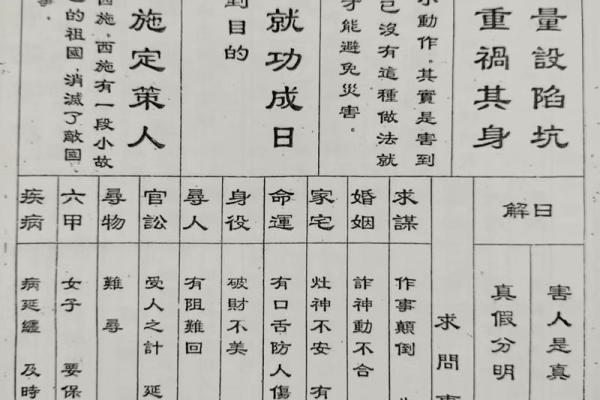 量設陷坑
重禍其身
動作。其實是害到
己沒有這種做法就
才能避免災害。
就功成日
到目的
施定策人
施。西施有一段小故
的祖國,消滅了敵國
事。
日解
害人是真
真假分明
求問
求謀
作事顛倒
婚姻
詐神動不合
家宅
灶神不安 有
命運
有口舌防人傷
身役
破財不美
尋人
有阻難回
官訟
受人之計 延
尋物
難尋
六甲
女子 要保
疾病
病延纏 及時